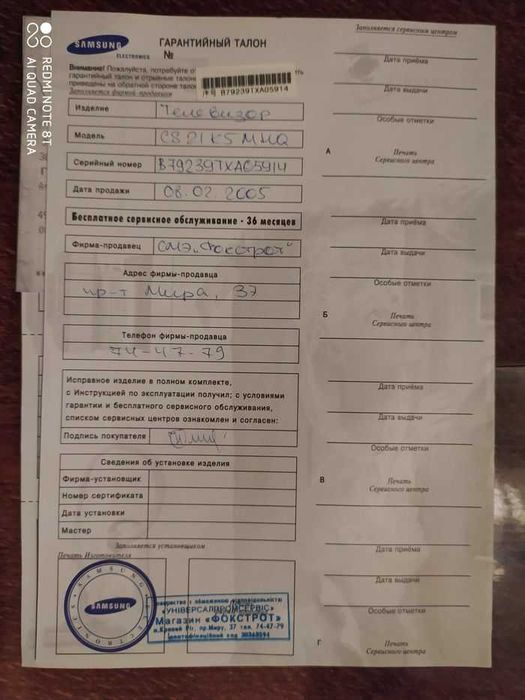 REDMI NOTE 8T
AI QUAD CAMERA
SAMSUNG
ELECTRONICS
ГАРАНТИЙНЫЙ ТАЛОН
№
Внимание! Пожалуйста, потребуйте
гарантийный талон и отрывные талоны
приведены на обратной стороне
Заполняется фирмой-продавцом
B79239TXA05914
Изделие Телевизор
Модель
Серийный номер B79239TXA05914
Дата продажи 08.02 2005
Бесплатное сервисное обслуживание - 36 месяцев
Фирма-продавец СМЭ „Фокстрот"
Адрес фирмы-продавца
пр-т Мира, 37
Телефон фирмы-продавца
74-47-79
Исправное изделие в полном комплекте,
с Инструкцией по эксплуатации получил; с условиями
гарантии и бесплатного сервисного обслуживания,
списком сервисных центров ознакомлен и согласен:
Подпись покупателя
Сведения об установке изделия
Фирма-установщик
Номер сертификата
Дата установки
Мастер
Заполняется установщиком
Печать Изготовителя
SAMSUNG
SAMSUNG ELECTRONICS
«УНІВЕРСАЛПРОМСЕРВІС»
Магазин «ФОКСТРОТ»
м.Кривий Ріг, пр.Миру, 37 тел. 74-47-79
Заполняется сервисным центром
Дата приёма
Дата выдачи
Особые отметки
А
Печать
Сервисного центра
Дата приёма
Дата выдачи
Особые отметки
Б
Печать
Сервисного центра
Дата приёма
Дата выдачи
Особые отметки
В
Печать
Сервисного центра
Дата приёма
Дата выдачи
Особые отметки
Г
Печать
Сервисного центра